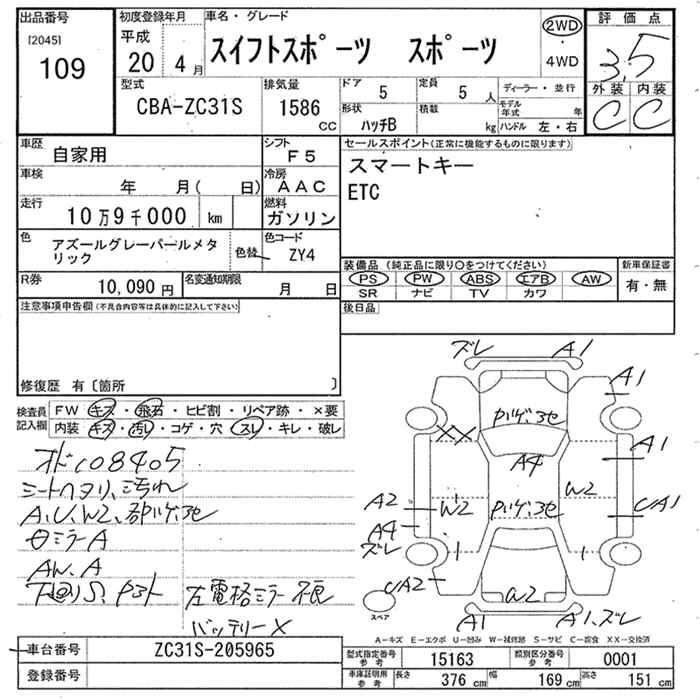 出品番号 初度登録年月 車名・グレード 評価点
[2045] 109
平成 20 4月
スイフトスポーツ スポーツ
2WD ・ 4WD
3.5
外装 内装
C C
型式 CBA-ZC31S
排気量 1586 CC
ドア 5 定員 5人
形状 ハッチB 積載 kg
ディーラー・並行
モデル年式 年
ハンドル 左・右
車歴 自家用
シフト F5
車検 年 月( 日)
冷房 AAC
走行 10万9千000 km
燃料 ガソリン
色 アズールグレーパールメタリック
色替
色コード ZY4
R券 10,090円
名変通知期限 月 日
セールスポイント(正常に機能するものに限ります)
スマートキー
ETC
装備品(純正品に限り○をつけてください)
PS PW ABS エアB AW
SR ナビ TV カワ
新車保証書
有・無
後日品
注意事項申告欄(不具合内容等は具体的に記入して下さい)
修復歴 有〔箇所 〕
検査員記入欄
FW キズ・飛石・ヒビ割・リペア跡・×要
内装 キズ・汚れ・コゲ・穴・スレ・キレ・破レ
オド108405
シートヘタリ、汚れ
A、U、W2、
ミラーA
AW、A
下回りS、
左電格ミラー不良
バッテリー×
ズレ A1
A1
XX
A4
A1
A2
A4
ズレ
W2
W2
UA1
UA2
A1
A1、ズレ
スペア
A-キズ E-エクボ U-凹み W-補修跡 S-サビ C-腐食 XX-交換済
車台番号 ZC31S-205965
登録番号
型式指定番号 参考 15163
類別区分番号 参考 0001
車庫証明用 参考 長さ 376 cm 幅 169 cm 高さ 151 cm